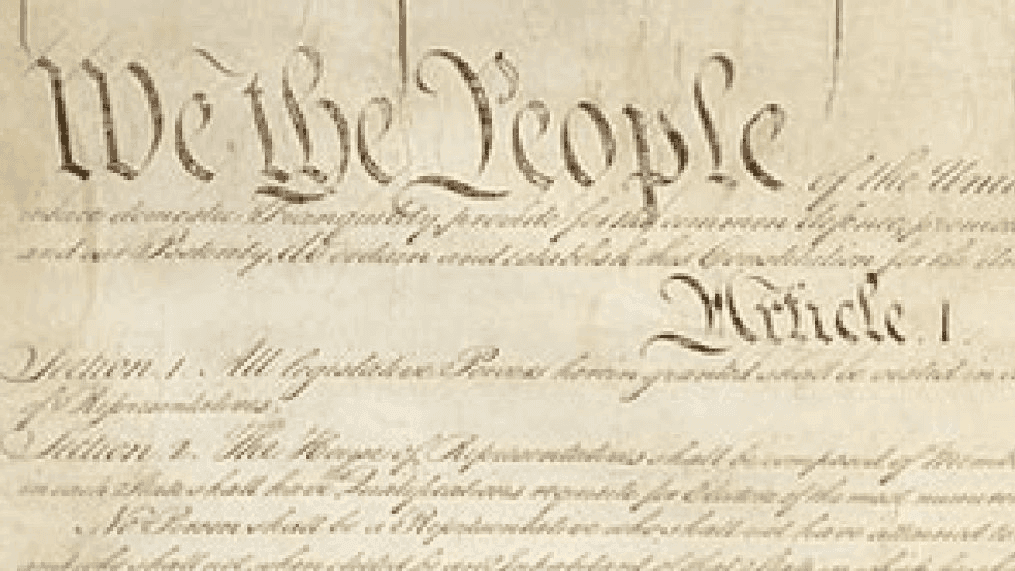 We the People of the Unit
insure domestic Tranquility, provide for the common defence, promo
and our Posterity, do ordain and establish this Constitution for the Un
Article. I.
Section. 1. All legislative Powers herein granted shall be vested in a
of Representatives.
Section. 2. The House of Representatives shall be composed of Mem
in each State shall have Qualifications requisite for Electors of the most numerous
No Person shall be a Representative who shall not have attained to
and who shall not, when elected, be an Inhabitant of that State in which